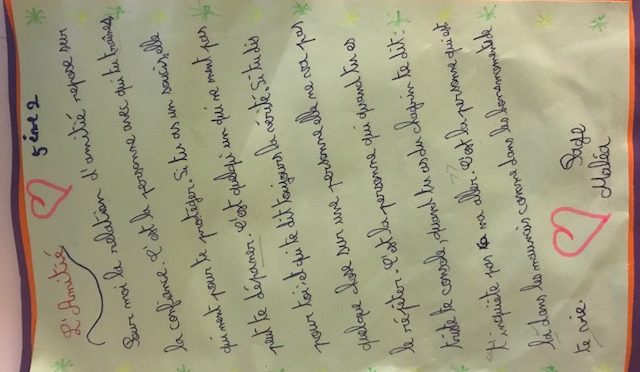 L'Amitié
5ème 2
Pour moi la relation d'amitié repose sur
la confiance. C'est la personne avec qui tu traînes
qui ment pour te protéger. Si tu as un soucis, elle
peut te dépaner. C'est quelqu'un qui ne ment pas
pour toi et qui te dit toujours la vérité. Si tu dis
quelque chose sur une personne elle ne va pas
le répéter. C'est la personne qui quand tu es
triste te console, quand tu as du chagrin te dit:
"t'inquiète pas va aller." C'est la personne qui est
là dans les mauvais comme dans les bons moments de
te vie.
Page
Maléa